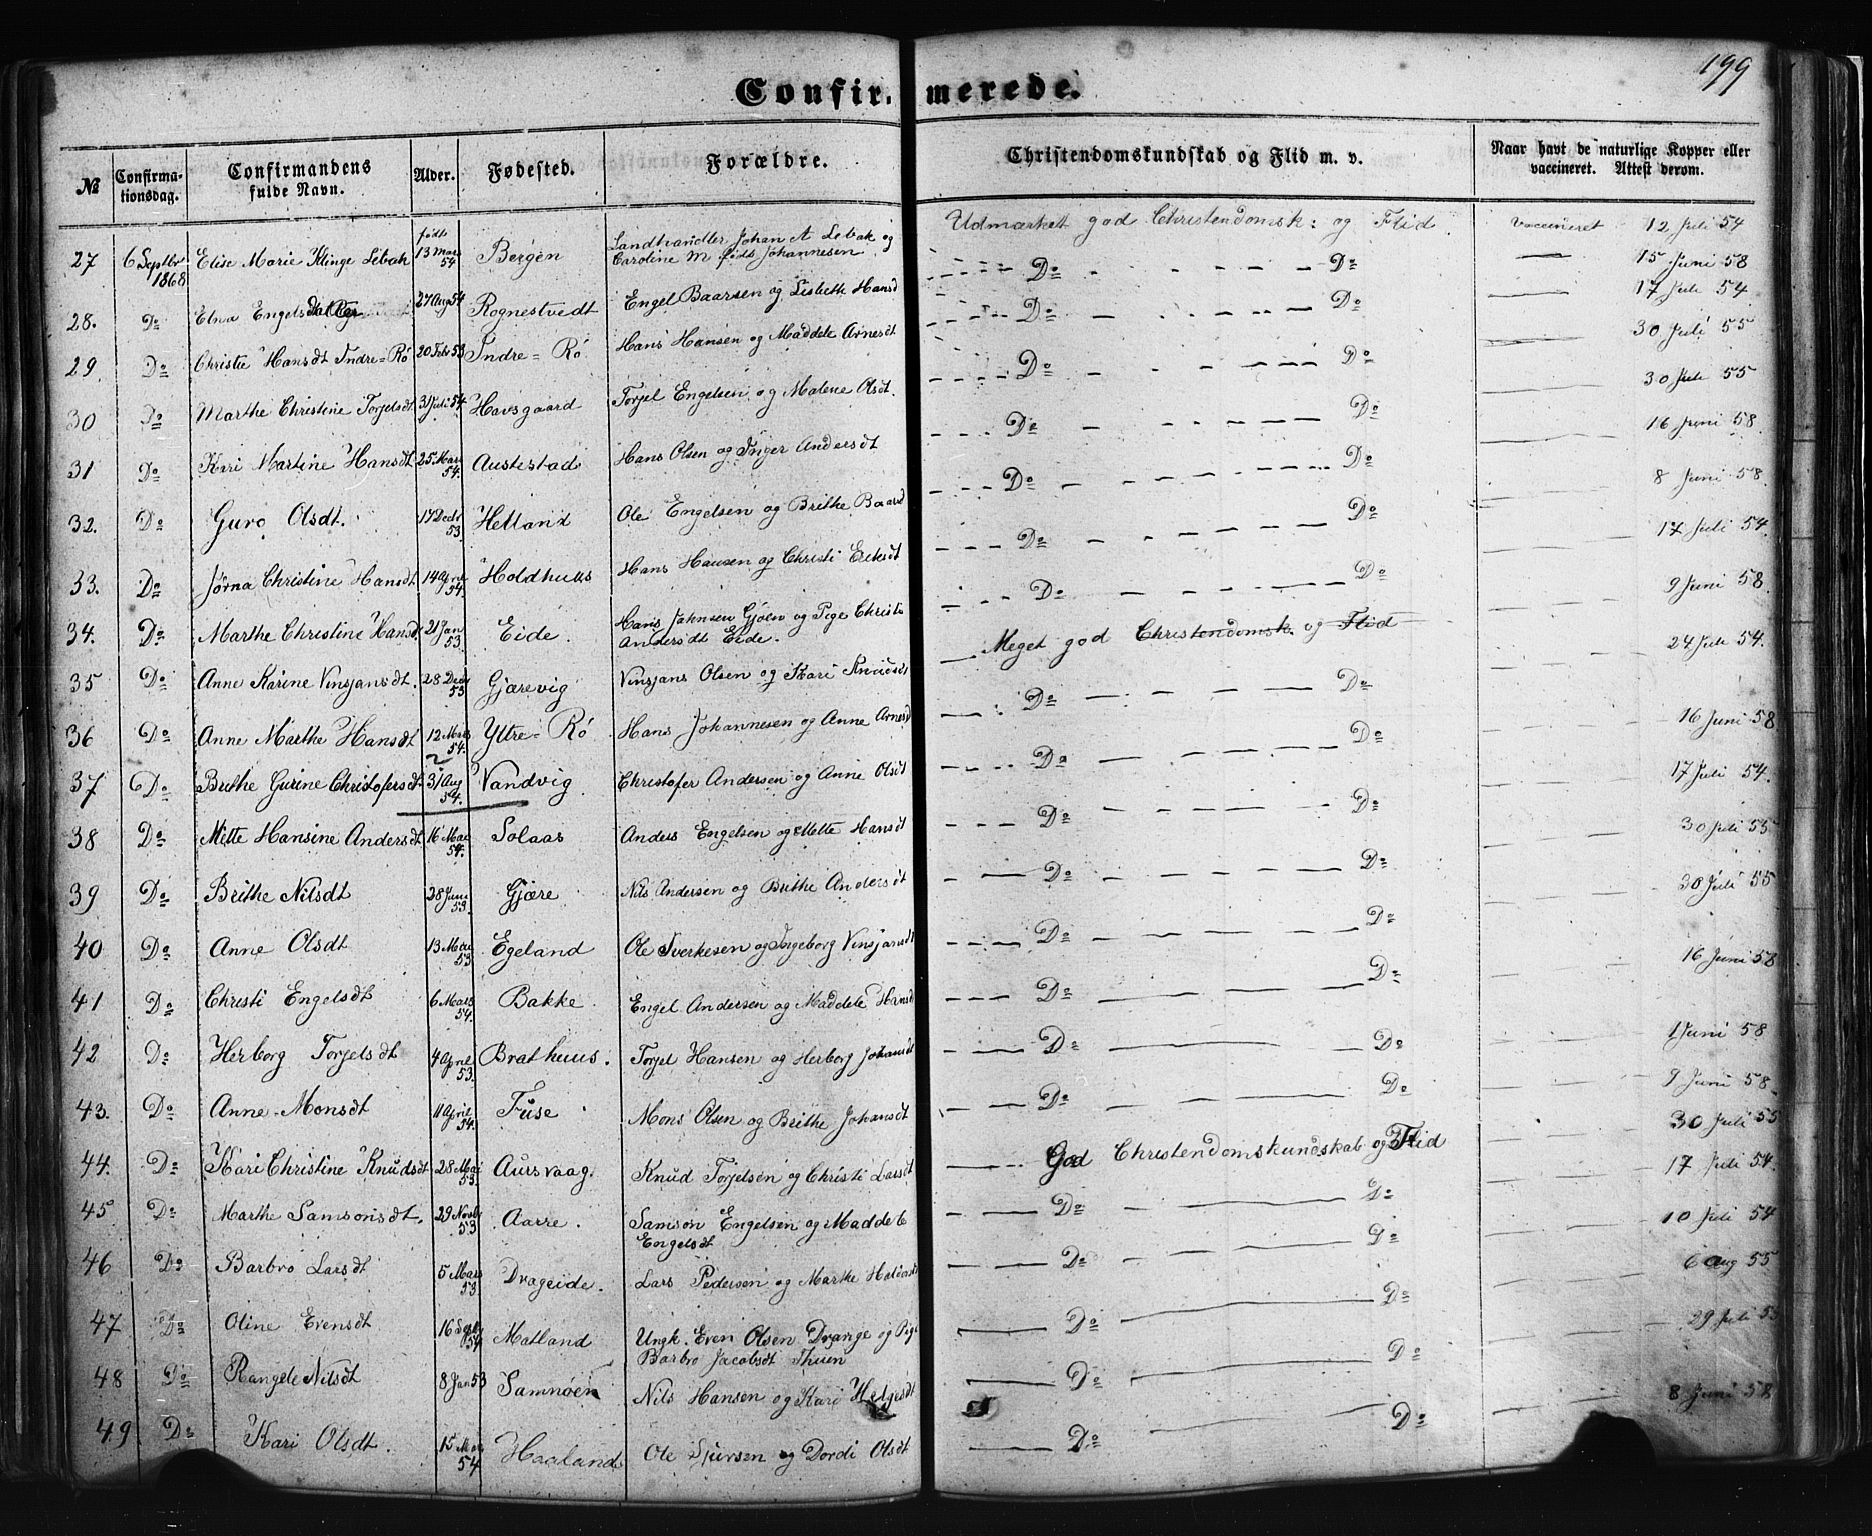 199
Confirmerede.
№ Confirmationsdag. Confirmandens fulde Navn. Alder. Fødested. Forældre. Christendomskundskab og Flid m. v. Naar havt de naturlige Kopper eller vaccineret. Attest derom.
27 6 Septbr 1868 Elise Marie Klinge Lebak fødte 13 Mars 54 Bergen Landhandler Johan A Lebak og Caroline M føds Johannesen Udmærket god Christendomsk: og Flid. vaccineret 12 Juli 54
28. Do Elna Engelsdatter 27 Aug 54 Rognestvedt Engel Baarsen og Lisbeth Hansd Do Do 15 Juni 58
29. Do Christie Hansdt Indre=Rö 20 Febr 53 Indre=Rö Hans Hansen og Maddele Arnesdt Do Do 17 Juli 54
30 Do Marthe Christine Torjelsdt 31 Juli 54 Havsgaard Torjel Engelsen og Malene Olsdt. Do Do 30 Juli 55
31 Do Kari Martine Hansdt 25 Mars 54. Austestad Hans Olsen og Inger Andersdt Do Do 30 Juli 55
32. Do Guro Olsdt. 17 Decbr 53 Helland Ole Engelsen og Brithe Baarsd Do Do 16 Juni 58.
33. Do Jørna Christine Hansdt 14 April 54. Holdhuus Hans Hansen og Christi Eriksdt Do Do 8 Juni 58.
34. Do Marthe Christine Hansdt 21 Jan 53. Eide. Hans Johnsen Gjöen og Pige Christi Andersdt Eide. Do Do 17 Juli 54.
35 Do Anne Karine Vinsjansdt. 28 Decbr 53 Gjærevig Vinsjans Olsen og Kari Knudsdt Meget god Christendomsk. og Flid 9 Juni 58
36 Do Anne Marthe Hansdt 12 Mars 54. Yttre=Rö Hans Johannesen og Anne Arnesd Do Do 24 Juli 54.
37 Do Brithe Gurine Christofersdt 31 Aug 54. Vandvig Christofer Andersen og Anne Olsdt Do Do 16 Juni 58
38 Do Mette Hansine Andersdt 16 Mai 54. Solaas Anders Engelsen og Mette Hansdt Do Do 17 Juli 54.
39 Do Brithe Nilsdt 28 Juni 53. Gjære Nils Andersen og Brithe Andersdt Do Do 30 Juli 55
40 Do Anne Olsdt 13 Mai 53 Egeland Ole Sverkesen og Ingeborg Vinsjansdt Do Do 30 Juli 55
41 Do Christi Engelsdt 6 Mars 54. Bakke. Engel Andersen og Maddele Hansdt Do Do 16 Juni 58
42 Do Herborg Torjelsdt 4 April 53. Brathuus. Torjel Hansen og Herborg Johansdt Do Do 1 Juni 58
43. Do Anne Monsdt 11 April 54. Fuse Mons Olsen og Brithe Johansdt Do Do 9 Juni 58.
44. Do Kari Christine Knudsdt 28 Mai 53 Aursvaag. Knud Torjelsen og Christi Larsdt God Christendomskundskab og Flid 30 Juli 55
45 Do Marthe Samsonsdt. 29 Novbr 53 Aarre. Samson Engelsen og Maddele Engelsdt Do Do 17 Juli 54.
46 Do Barbro Larsdt 5 Mars 53 Drageide. Lars Pedersen og Marthe Do Do 10 Juli 54
47 Do Oline Evensdt 16 Septbr 54 Matland Ungk. Even Olsen Drange og Pige Barbro Jacobsdt Thuen Do Do 6 Aug 55
48 Do Rangele Nilsdt 8 Jan 53 Samnöen Nils Hansen og Kari Helgesdt Do Do 29 Juli 53
49 Do Kari Olsdt. 15 Mai 54 Haaland Ole Sjursen og Dordi Olsdt Do Do 8 Juni 58